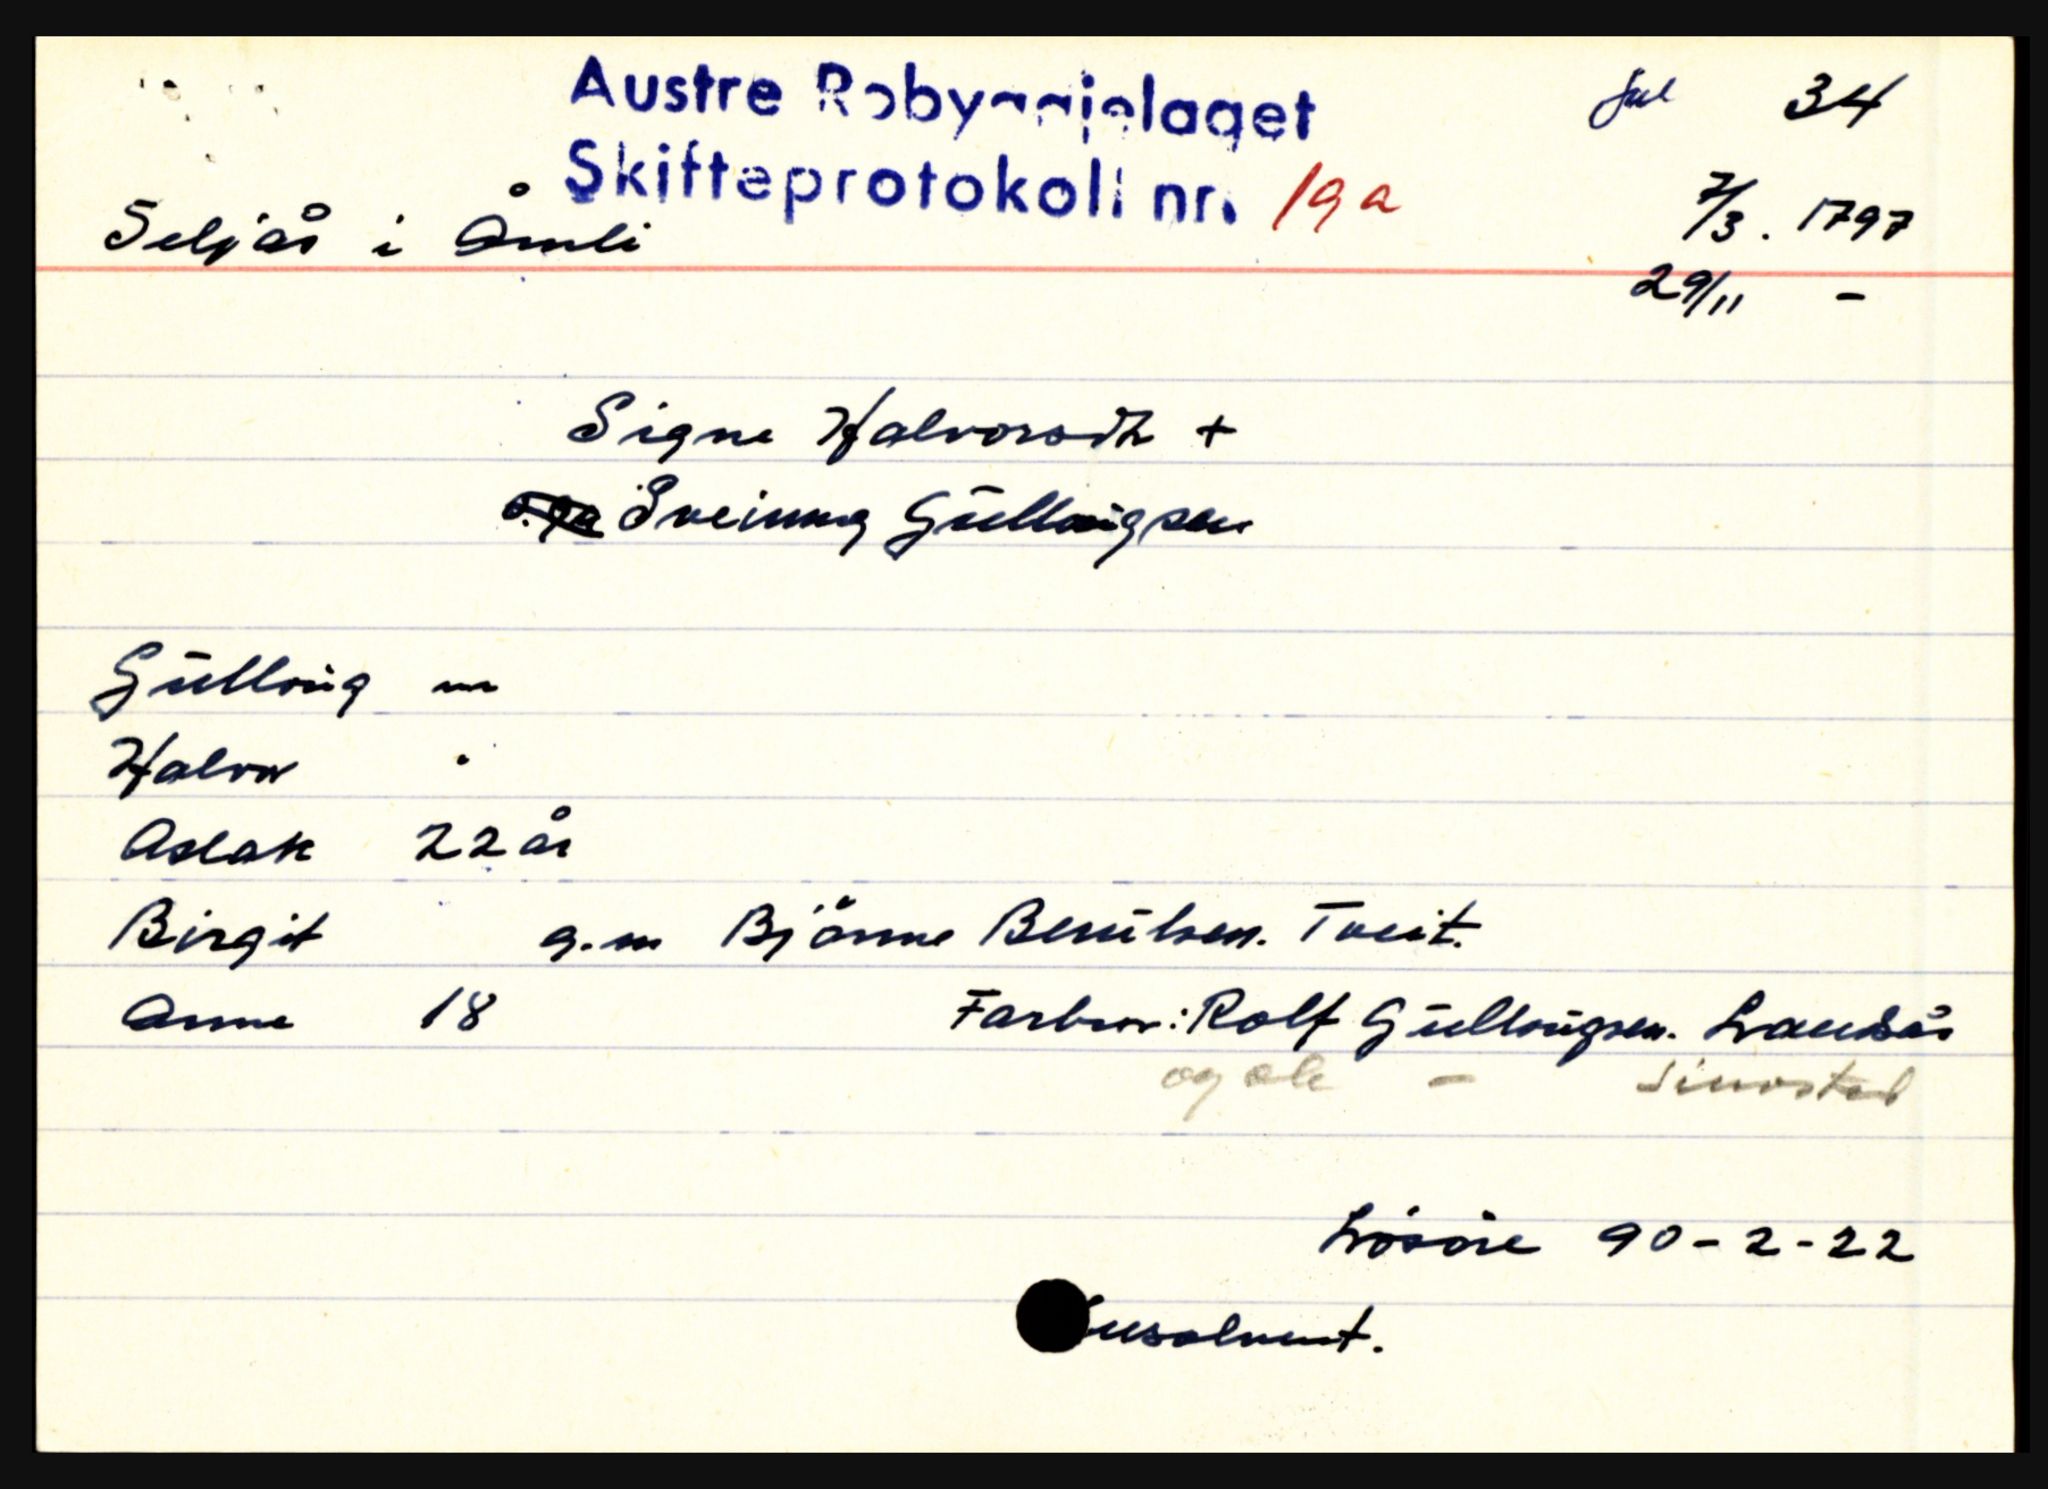 Austre Robyggjelaget
Skifteprotokoll nr. 19a
fol 34
Seljås i Åmli
7/3. 1797
29/11 -
Signe Halvorsdtr +
Sveinung Gullougsen
Gulloug m
Halvor "
Aslak 22 år
Birgit g.m Bjönne Berulsen. Tveit.
Anne 18 Farbror: Rolf Gullougsen.
og ole -
Lösöre 90-2-22
Insolvent.